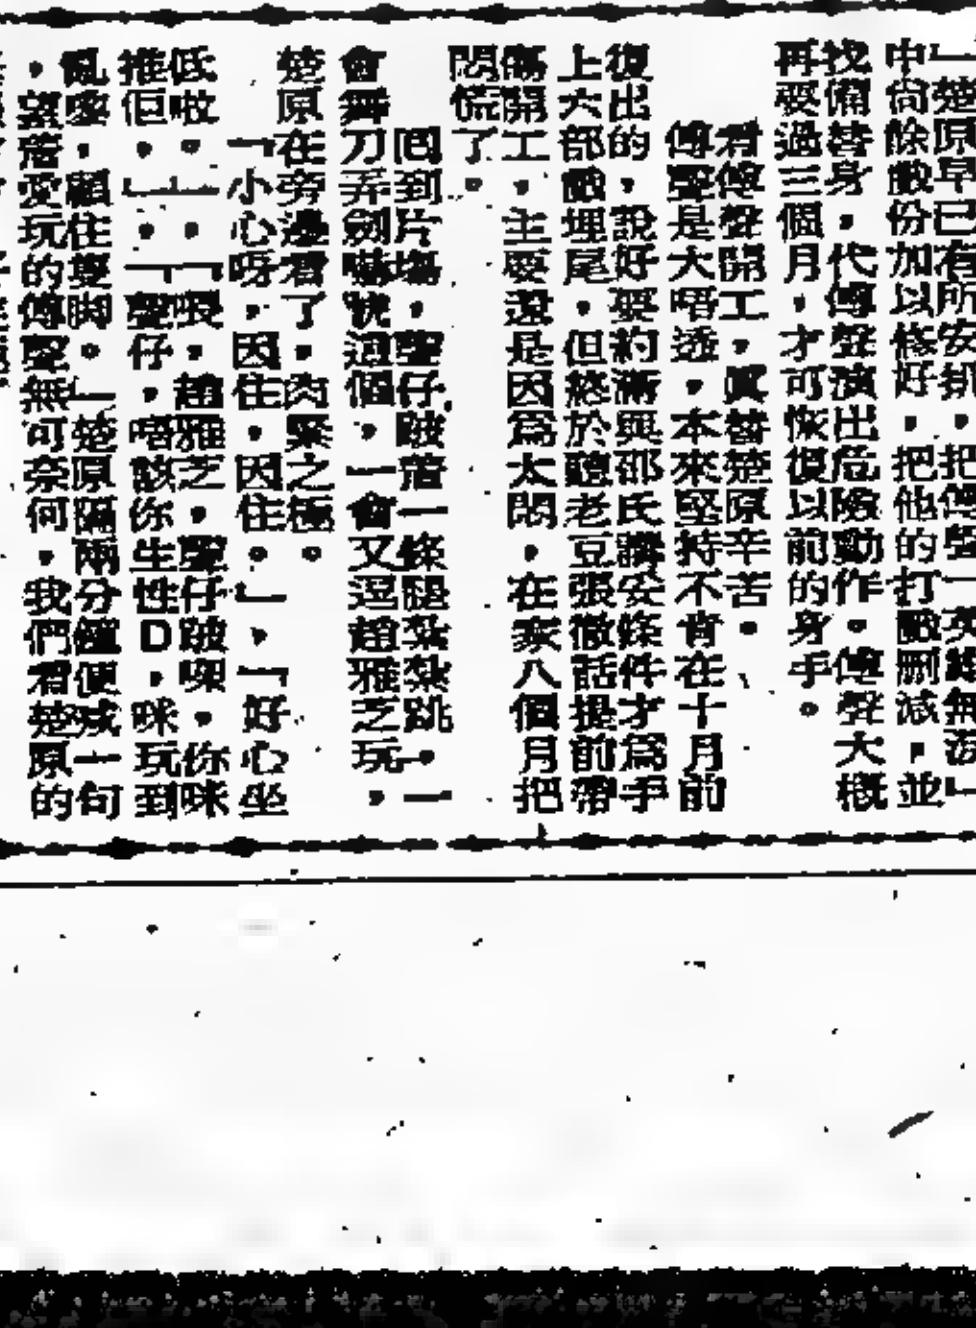 「楚原早已有所安排，把傅聲一英雄無淚」
中尚餘戲份加以修好，把他的打戲刪減，並
找備替身，代傅聲演出危險動作。傅聲大概
再要過三個月，才可恢復以前的身手。
看傅聲開工，眞替楚原辛苦。
傅聲是大唔透，本來堅持不肯在十月前
復出的，說好要約滿與邵氏講妥條件才爲手
上六部戲埋尾，但終於聽老豆張徹話提前帶
傷開工，主要還是因爲太悶，在家八個月把
悶慌了。
回到片塲，聲仔跛着一條腿紮紮跳，一
會舞刀弄劍嚇親這個，一會又逗趙雅芝玩，
楚原在旁邊看了，肉緊之極。
「小心呀，因住，因住。」，「好心坐
低啦。」，「喂，趙雅芝，聲仔跛㗎，你咪
推佢，」，「聲仔，唔該你生性D，咪玩到
亂嚟，顧住隻脚。」楚原隔兩分鐘便喊一句
，望着愛玩的傅聲無可奈何，我們看楚原的